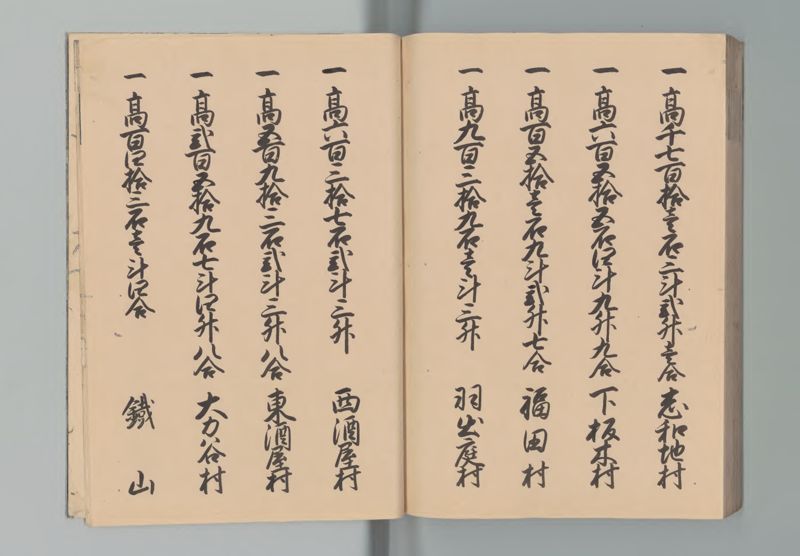 一高千七百拾壱石三斗弐升壱合 志和地村
一高六百五拾五石四斗九升九合 下板木村
一高百五拾壱石九斗弐升七合 福田村
一高九百三拾九石壱斗三升 羽出庭村
一高六百三拾七石弐斗三升 西酒屋村
一高五百九拾三石弐斗三升八合 東酒屋村
一高弐百五拾九石七斗四升八合 大力谷村
一高百四拾三石壱斗四合 鐵山